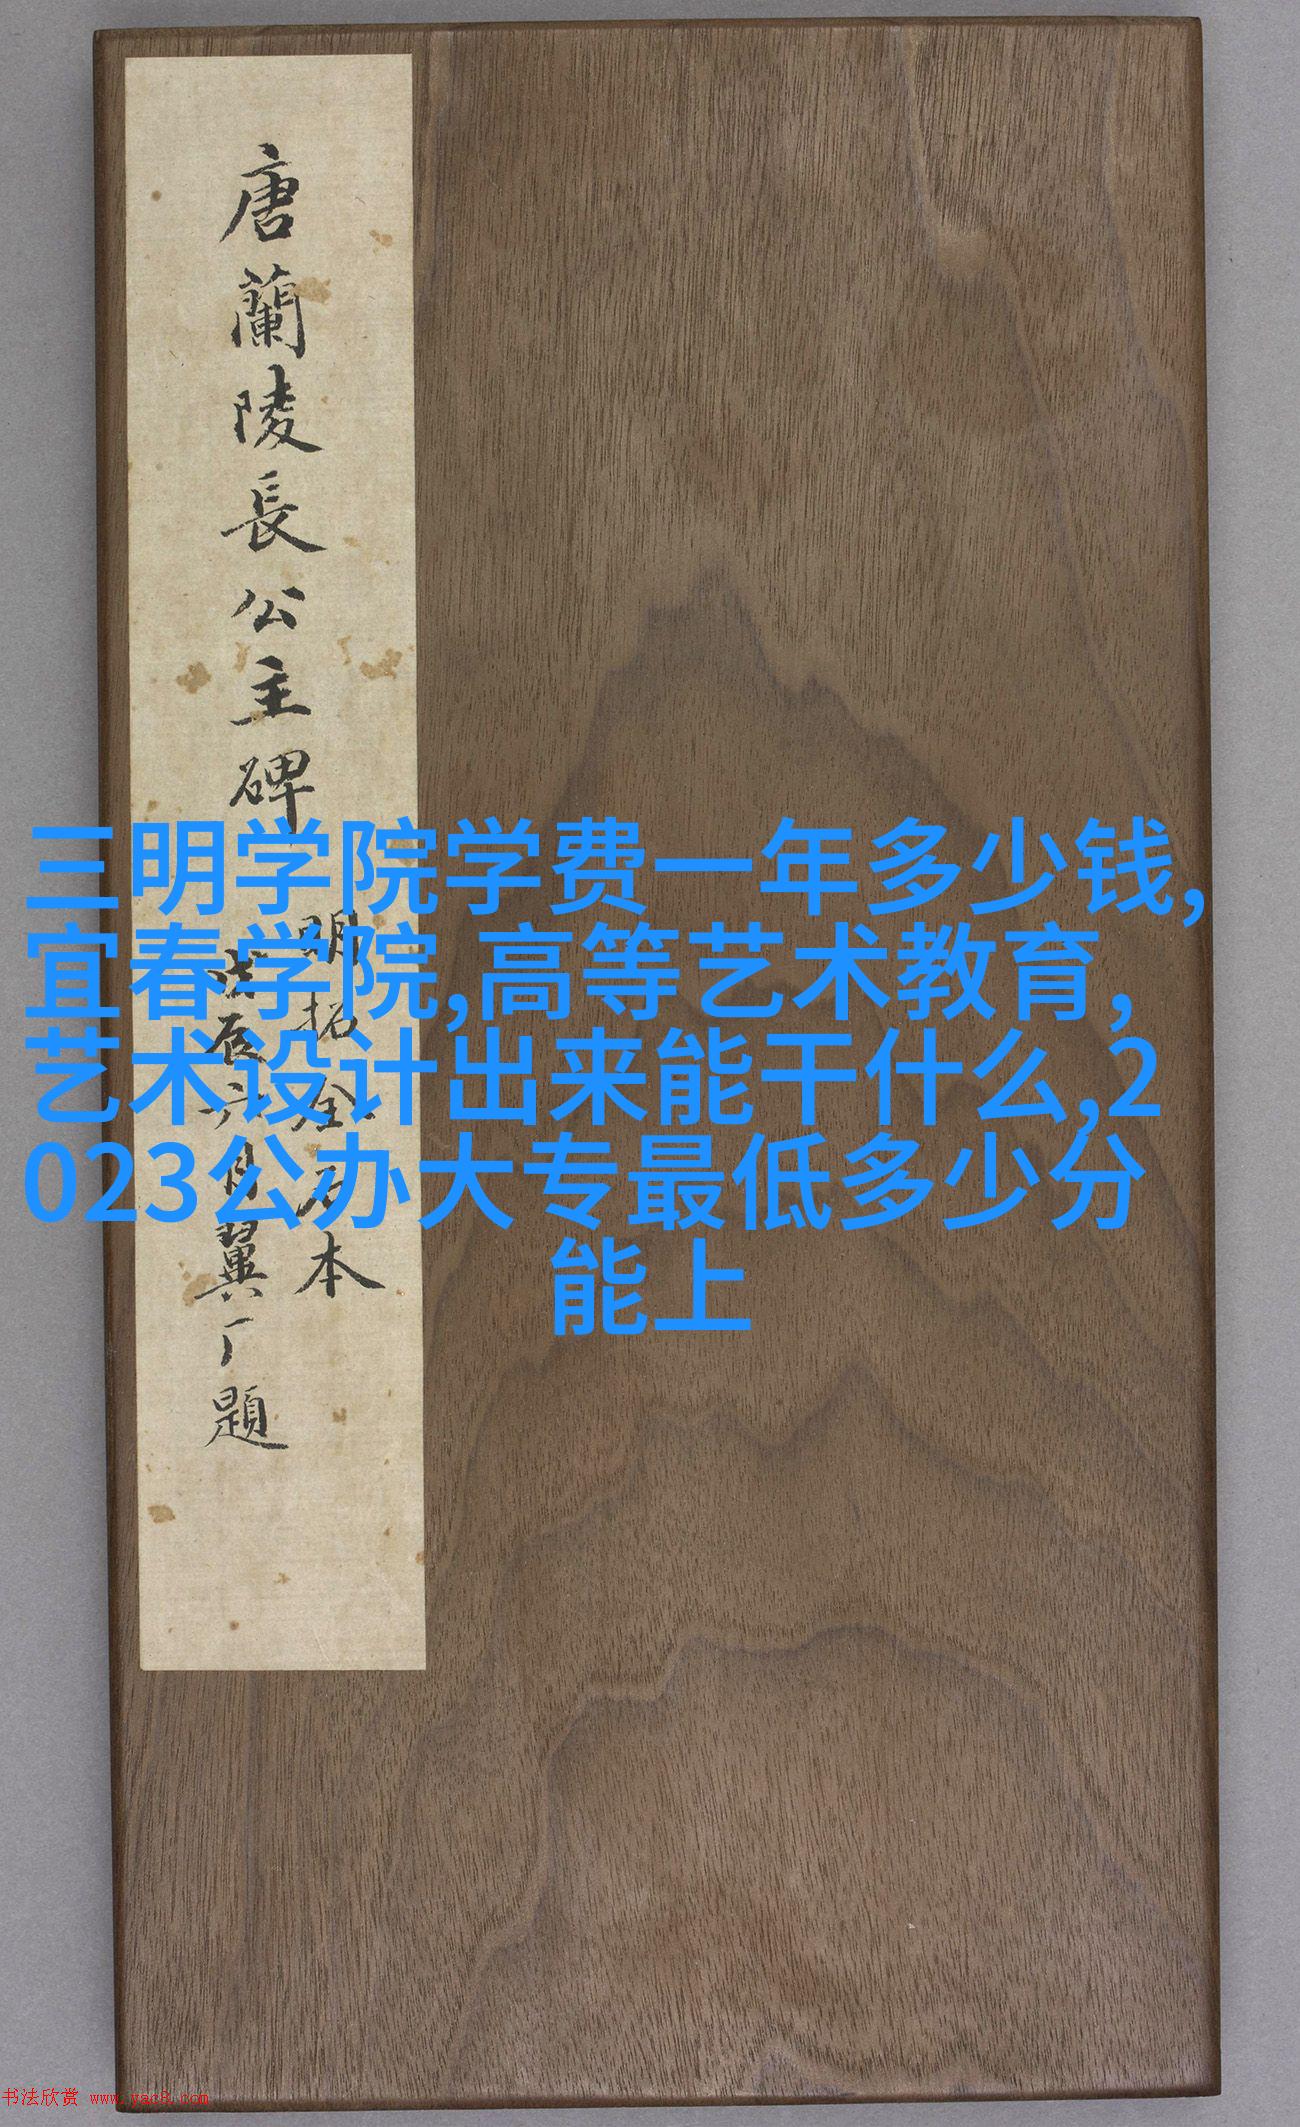 唐蘭陵長公主碑
明拓全石本
戊辰六月翼厂題
三明学院学费一年多少钱,
宜春学院,高等艺术教育,
艺术设计出来能干什么,2
023公办大专最低多少分
能上
书法欣赏 www.yac8.com